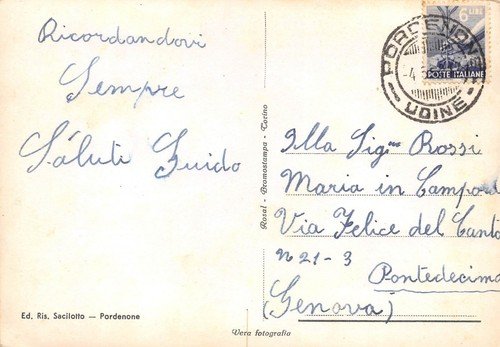 Ricordandovi
Sempre
Saluti Guido
Ed. Ris. Sacilotto — Pordenone
Vera fotografia
Rotal - Bromostampa - Torino
6 LIRE
POSTE ITALIANE
PORDENONE
UDINE
Illa Sig.na Rossi
Maria in Campod
Via Felice del Canto
n 21-3
Pontedecimo
(Genova)